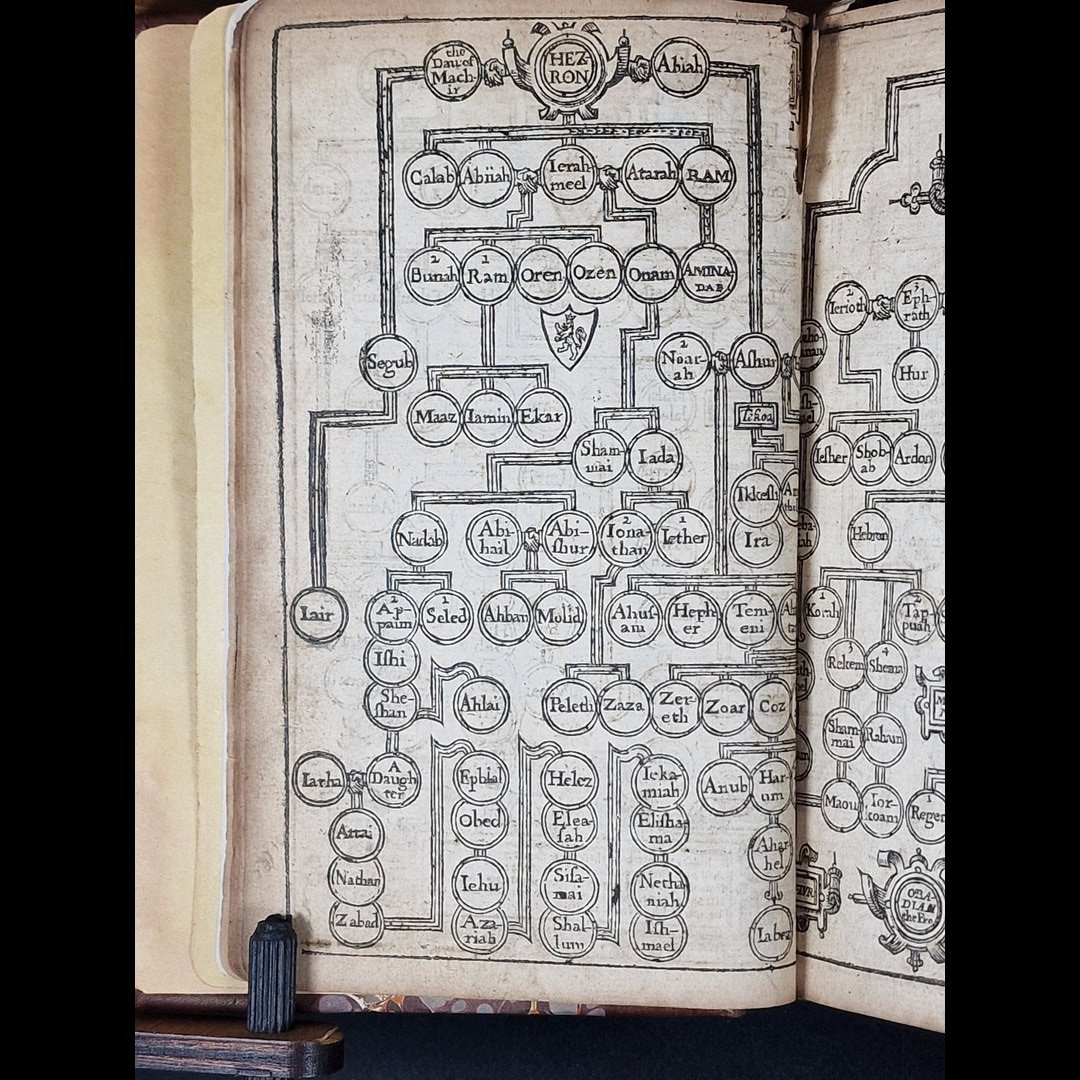 the
Dau: of
Mach-
ir
HEZ-
RON
Abiah
Calab
Abiiah
Ierah-
meel
Atarah
RAM
2
Bunah
1
Ram
Oren
Ozen
Onam
AMINA-
DAB
Segub
2
Noar-
ah
Aſhur
Tekoa
Maaz
Iamin
Ekar
Sham-
mai
Iada
Ikkeſh
Ira
Nadab
Abi-
hail
Abi-
ſhur
2
Iona-
than
1
Iether
Iair
2
Ap-
paim
1
Seled
Ahban
Molid
Ahuſ-
am
Heph-
er
Tem-
eni
Iſhi
She-
ſhan
Ahlai
Peleth
Zaza
Zer-
eth
Zoar
Coz
Iarha
A
Daugh
ter
Ephlal
Helez
Ieka-
miah
Anub
Har-
um
Attai
Obed
Elea-
ſah
Eliſha-
ma
Ahar-
hel
Nathan
Iehu
Siſa-
mai
Netha-
niah
Zabad
Aza-
riah
Shal-
lum
Iſh-
mael
Iabez
2
Ierioth
3
Eph-
rath
Hur
Ieſher
Shob-
ab
Ardon
Hebron
1
Korah
2
Tap-
puah
3
Rekem
4
Shema
Sham-
mai
Raham
Maon
Ior-
coam
1
Regem
OBA-
DIAH
the Pro